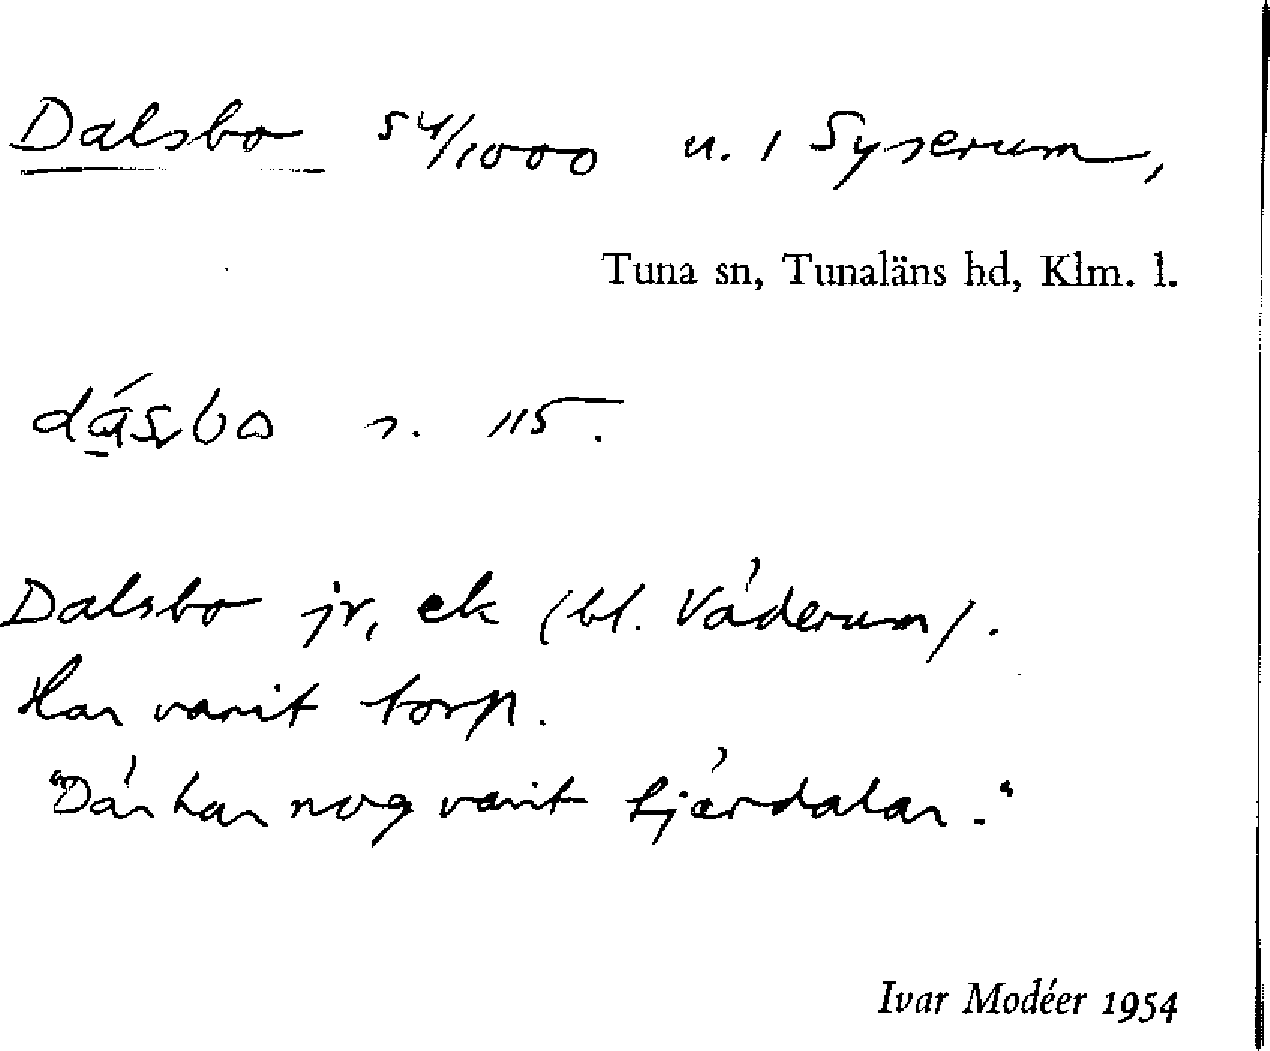 Dalsbo 54/1000 u. 1 Syserum,
Tuna sn, Tunaläns hd, Klm. l.
dásbo s. 115.
Dalsbo jr, ek (bl. Väderum).
Har varit torp.
"Där har nog varit tjärdalar."
Ivar Modéer 1954